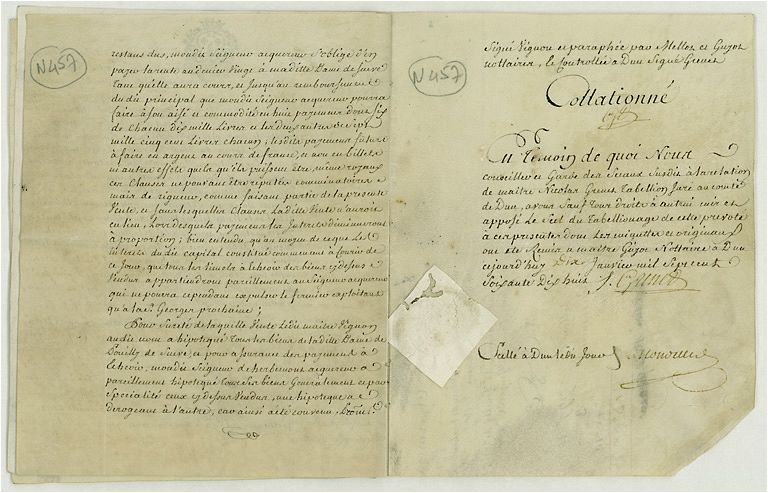 N457
restans dus, mondit Seigneur acquereur s'oblige d'en
payer la rente au denier vingt à maditte Dame de Suève
tant qu'elle aura cours, et jusqu'au remboursement
du dit principal que mondit Seigneur acquereur pourra
faire à son aisé et commodité en huit payemens dont six
de chacun dix mille Livres et les deux autres de sept
mille cinq cens Livres chacun; lesdits payemens futurs
à faire en argent au cours de france, et non en billets
ni autres effets quels qu'ils puissent être, même royaux
ces Clauses ne pouvant être réputées comminatoires
mais de rigueur, comme faisant partie de la presente
Vente, et sans lesquelles Clauses Laditte Vente n'auroit
eu lieu, Lors desquels payemens les Interets diminueront
à proportion; bien entendu qu'au moyen de ce que Les
Interets du dit capital constitué commencent à courir de
ce Jour, que tous les émolumens à echeoir des biens cy dessus
Vendus appartiendront pareillement au Seigneur acquereur
qui ne pourra cependant expulser le fermier exploitant
qu'à la St Georges prochaine;
Pour Sureté de laquelle Vente Ledit maitre Vignon
audit nom a hipotequé tous les biens de laditte Dame de
Pouilly de Suève, et pour assurance des payemens à
echeoir, mondit Seigneur de herbemont acquereur a
pareillement hipotequé tous ses biens Generalement et par
Specialité ceux cy dessus Vendus, une hipoteque ne
derogeant à l'autre, car ainsi a été convenu, Promet.
N457
Signé Vignon et paraphée par Mellet et Guyot
nottaires, et Controllée à Dun Signé Genets
Collationné
En témoin de quoi Nous
conseiller et Garde des Sceaux Susdit à la relation
de maitre Nicolas Genets Tabellion Juré au comté
de Dun, avons Sauf tous droits à autrui mis et
apposé Le Scel du Tabellionage de cette prevoté
à ces presentes dont Les minuttes et originaux
ont été Remis à maitre Guyot Nottaire à Dun
cejourd'huy dix Janvier mil Sept cent
Soixante Dix huit
Scellé à Dun Ledit Jour